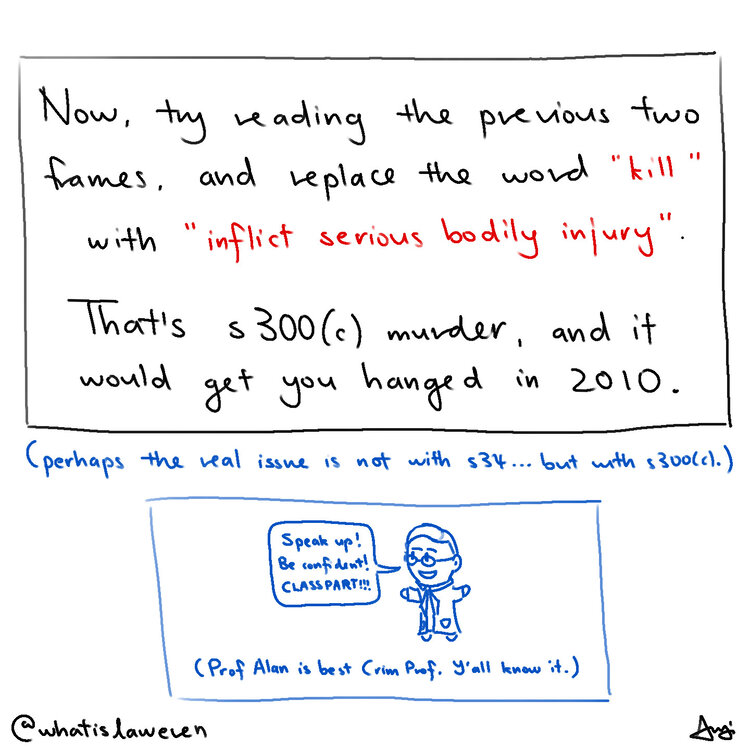 Now, try reading the previous two
frames, and replace the word "kill"
with "inflict serious bodily injury".
That's s300(c) murder, and it
would get you hanged in 2010.
(perhaps the real issue is not with s34... but with s300(c).)
Speak up!
Be confident!
CLASSPART!!!
(Prof Alan is best Crim Prof. Y'all know it.)
@whatislaweven
Angi